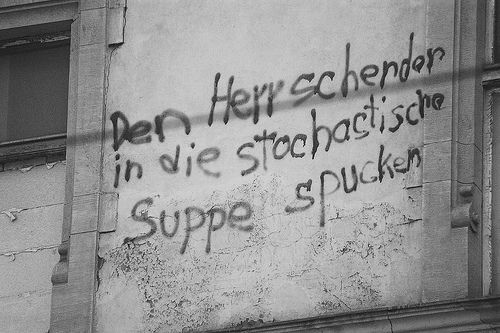 Den Herrschenden
in die stochastische
Suppe spucken